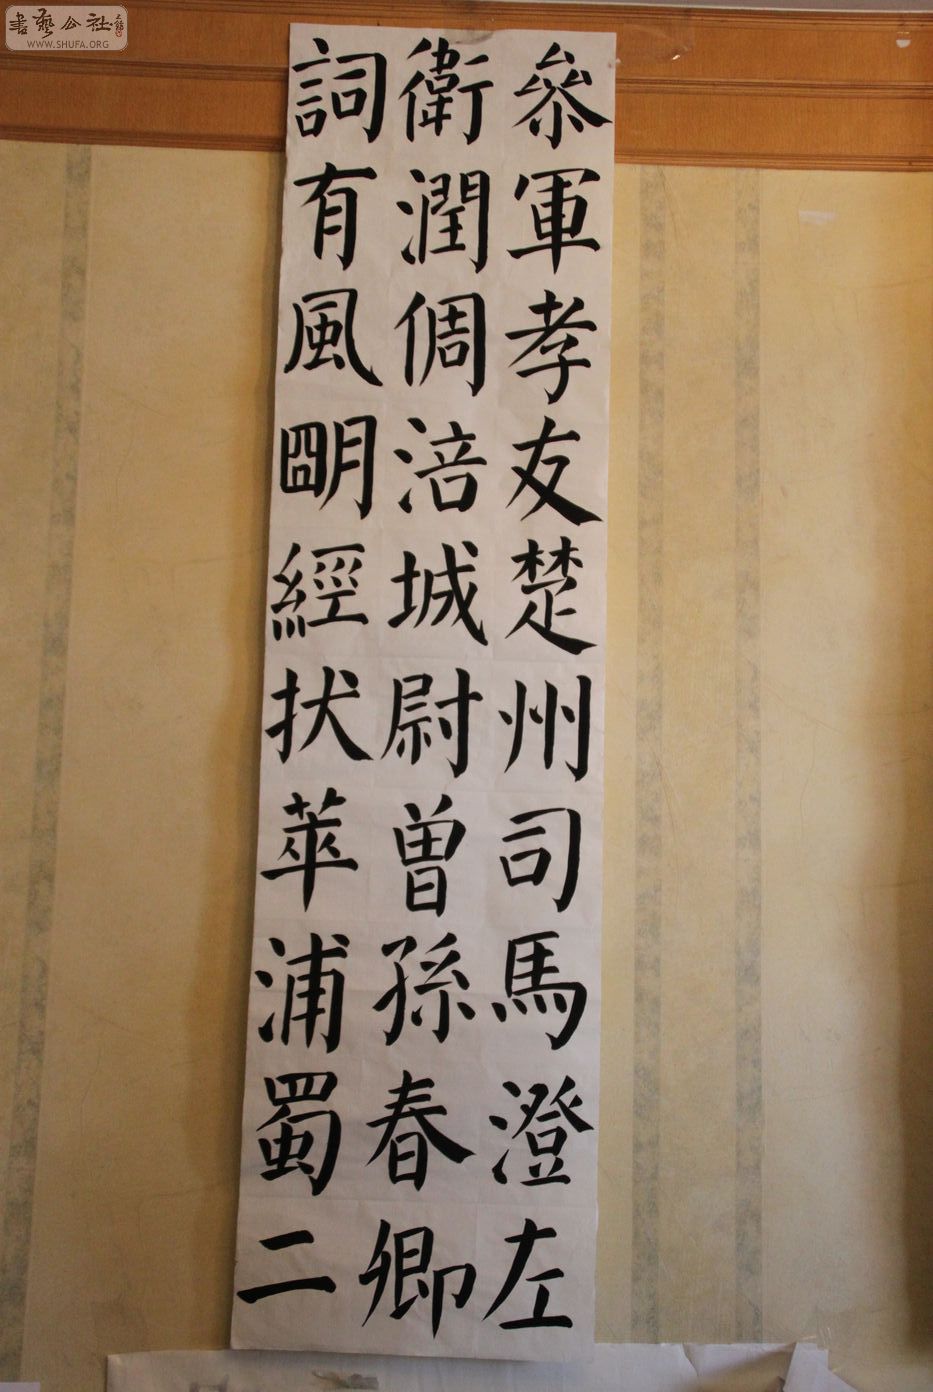 叅軍孝友楚州司馬澄左
衛潤倜涪城尉曾孫春卿
詞有風朙經拔萃浦蜀二
書藝公社
WWW.SHUFA.ORG